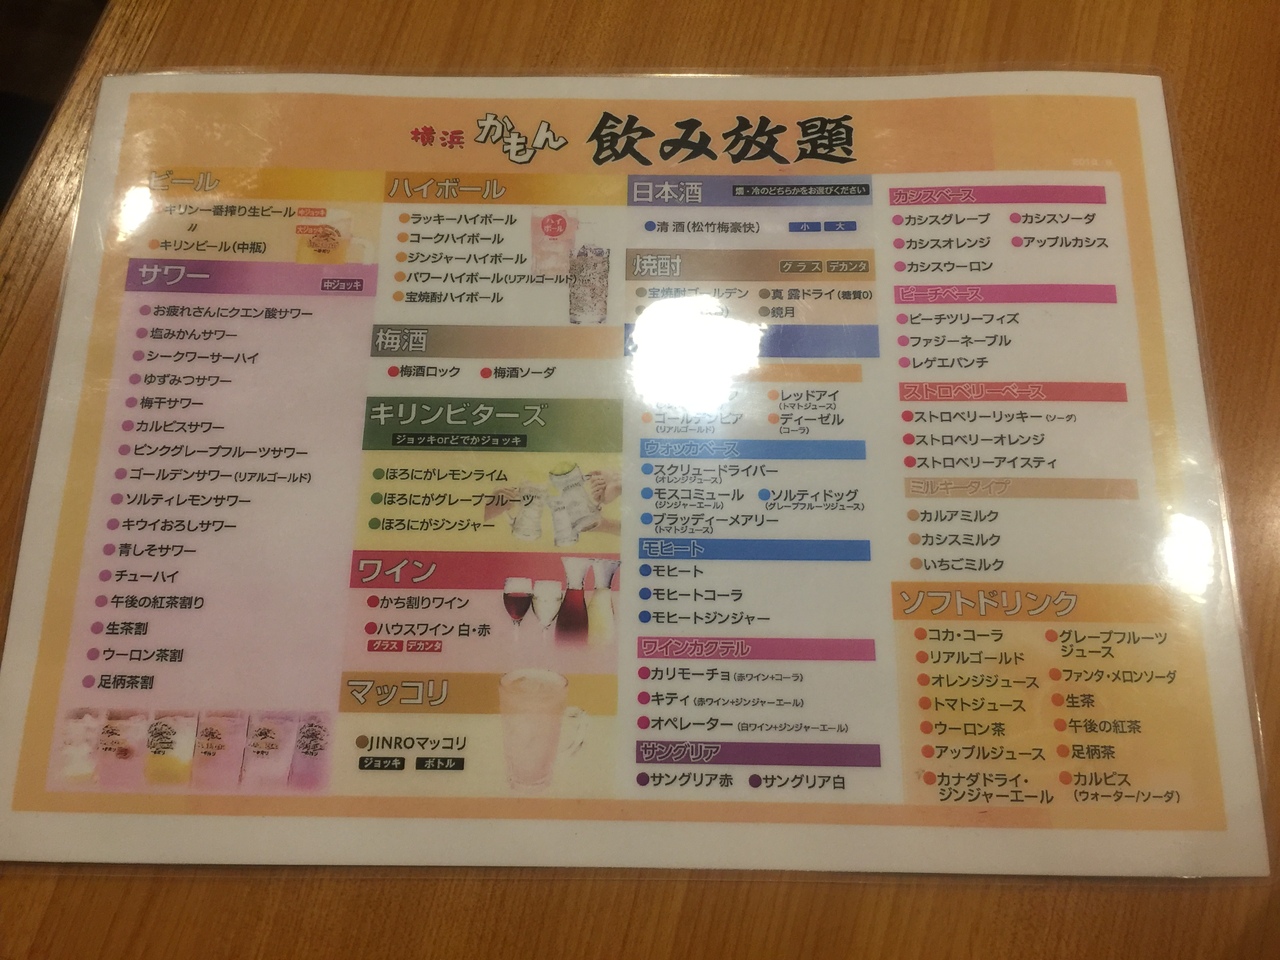 横浜 かもん 飲み放題
ビール
キリン一番搾り生ビール 中ジョッキ
〃 大ジョッキ
キリンビール(中瓶)
サワー 中ジョッキ
お疲れさんにクエン酸サワー
塩みかんサワー
シークワーサーハイ
ゆずみつサワー
梅干サワー
カルピスサワー
ピンクグレープフルーツサワー
ゴールデンサワー(リアルゴールド)
ソルティレモンサワー
キウイおろしサワー
青しそサワー
チューハイ
午後の紅茶割り
生茶割
ウーロン茶割
足柄茶割
ハイボール
ラッキーハイボール
コークハイボール
ジンジャーハイボール
パワーハイボール(リアルゴールド)
宝焼酎ハイボール
ハイボール
梅酒
梅酒ロック 梅酒ソーダ
キリンビターズ
ジョッキorどでかジョッキ
ほろにがレモンライム
ほろにがグレープフルーツ
ほろにがジンジャー
ワイン
かち割りワイン
ハウスワイン 白・赤
グラス デカンタ
マッコリ
JINROマッコリ
ジョッキ ボトル
日本酒 燗・冷のどちらかをお選びください
清酒(松竹梅豪快) 小 大
焼酎 グラス デカンタ
宝焼酎ゴールデン 真露ドライ(糖質0)
鏡月
レッドアイ
(トマトジュース)
ゴールデンビア ディーゼル
(リアルゴールド) (コーラ)
ウォッカベース
スクリュードライバー
(オレンジジュース)
モスコミュール ソルティドッグ
(ジンジャーエール) (グレープフルーツジュース)
ブラッディーメアリー
(トマトジュース)
モヒート
モヒート
モヒートコーラ
モヒートジンジャー
ワインカクテル
カリモーチョ(赤ワイン+コーラ)
キティ(赤ワイン+ジンジャーエール)
オペレーター(白ワイン+ジンジャーエール)
サングリア
サングリア赤 サングリア白
カシスベース
カシスグレープ カシスソーダ
カシスオレンジ アップルカシス
カシスウーロン
ピーチベース
ピーチツリーフィズ
ファジーネーブル
レゲエパンチ
ストロベリーベース
ストロベリーリッキー(ソーダ)
ストロベリーオレンジ
ストロベリーアイスティ
ミルキータイプ
カルアミルク
カシスミルク
いちごミルク
ソフトドリンク
コカ・コーラ
リアルゴールド
オレンジジュース
トマトジュース
ウーロン茶
アップルジュース
カナダドライ・
ジンジャーエール
グレープフルーツ
ジュース
ファンタ・メロンソーダ
生茶
午後の紅茶
足柄茶
カルピス
(ウォーター/ソーダ)